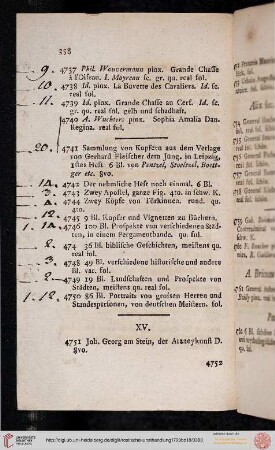 358
9. 4737 Phil. Wouvermans pinx. Grande Chasse
à l'Oiseau. I. Moyreau sc. gr. qu. real fol.
10. 4738 Id. pinx. La Buvette des Cavaliers. Id. sc.
real fol.
11. 4739 Id. pinx. Grande Chasse au Cerf. Id. sc.
gr. qu. real fol. gelb und schadhaft.
4740 A. Wuchters pinx. Sophia Amalia Dan.
Regina. real fol.
20. 4741 Sammlung von Kupfern aus dem Verlage
von Gerhard Fleischer dem Jung. in Leipzig,
1stes Heft. 6 Bl. von Penzel, Stoelzel, Boett-
ger etc. 8vo.
4742 Der nehmliche Heft noch einmal. 6 Bl.
3. 4743 Zwey Apostel, ganze Fig. 4to. in schw. K.
4744 Zwey Köpfe von Türkinnen. rund. qu.
4to.
12. 4745 9 Bl. Kupfer und Vignetten zu Büchern.
4746 100 Bl. Prospekte von verschiedenen Städ-
ten, in einem Pergamentbande. qu. fol.
2. 474 36 Bl. biblische Geschichten, meistens qu.
real fol.
4748 49 Bl. verschiedene historische und andere
Bl. vac. fol.
2. 4749 19 Bl. Landschaften und Prospekte von
Städten, meistens qu. real fol.
1. 12. 4750 86 Bl. Portraits von grossen Herren und
Standespersonen, von deutschen Meistern. fol.
XV.
4751 Joh. Georg am Stein, der Arzneykunst D.
8vo.
4752